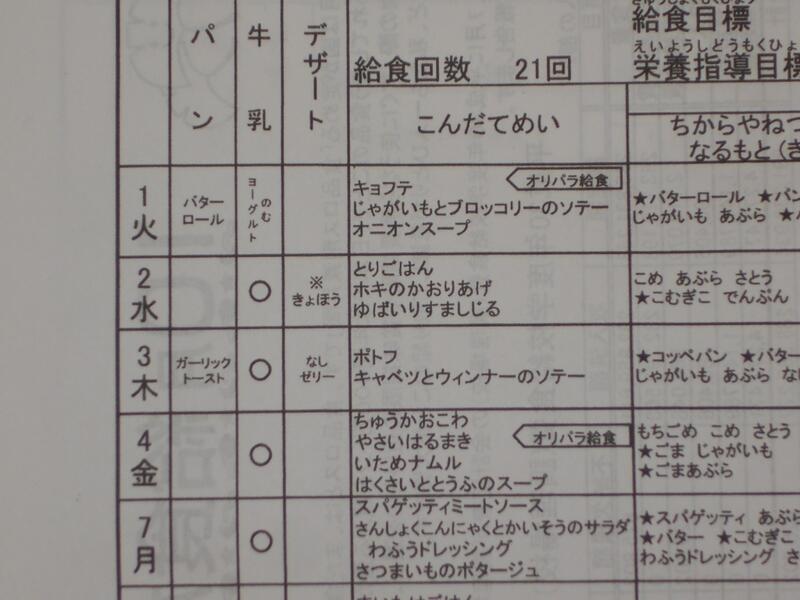 パン
牛乳
デザート
給食回数 21回
給食目標
えいようしどうもくひょ
栄養指導目標
こんだてめい
ちからやねつ
なるもと(き
1
火
バター
ロール
のむ
ヨーグルト
キョフテ
オリパラ給食
じゃがいもとブロッコリーのソテー
オニオンスープ
★バターロール ★パン
じゃがいも あぶら
2
水
○
※
きょほう
とりごはん
ホキのかおりあげ
ゆばいりすましじる
こめ あぶら さとう
★こむぎこ でんぷん
3
木
ガーリック
トースト
○
なし
ゼリー
ポトフ
キャベツとウィンナーのソテー
★コッペパン ★バター
じゃがいも あぶら
4
金
○
ちゅうかおこわ
やさいはるまき
オリパラ給食
いためナムル
はくさいととうふのスープ
もちごめ こめ さとう
★ごま じゃがいも
★ごまあぶら
7
月
○
スパゲッティミートソース
さんしょくこんにゃくとかいそうのサラダ
わふうドレッシング
さつまいものポタージュ
★スパゲッティ あぶら
★バター ★こむぎこ
わふうドレッシング